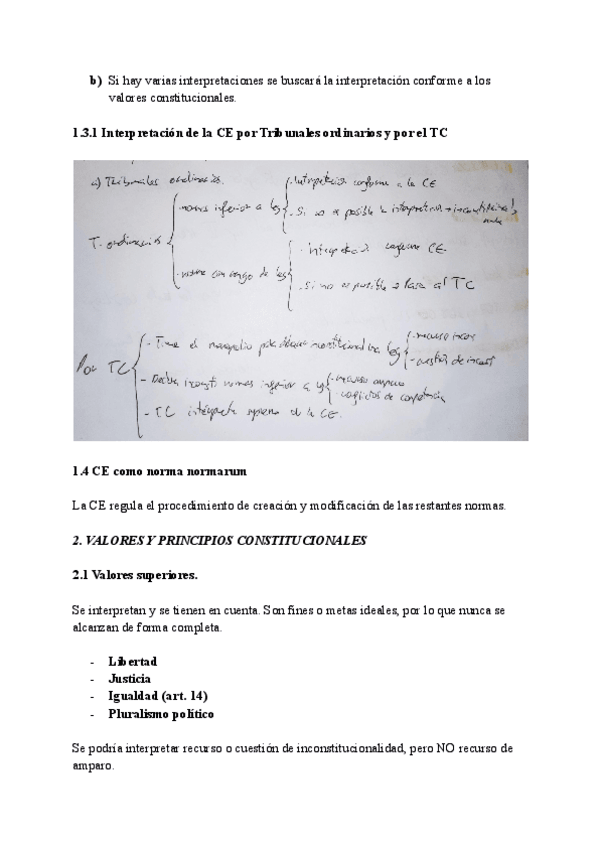 b) Si hay varias interpretaciones se buscará la interpretación conforme a los
valores constitucionales.
1.3.1 Interpretación de la CE por Tribunales ordinarios y por el TC
a) Tribunales ordinarios.
T. ordinarios
- norma inferior a ley
- Interpretación conforme a la CE
- Si no es posible la interpretación →
- norma con rango de ley
- Interpretación conforme CE
- Si no es posible → Pasa al TC
Por TC
- Tiene el monopolio para declarar inconstitucional una ley
- recurso incon
- cuestión de inconst
- Declara inconsti normas inferior a ley
- recurso amparo
- conflictos de competencia
- TC intérprete supremo de la CE.
1.4 CE como norma normarum
La CE regula el procedimiento de creación y modificación de las restantes normas.
2. VALORES Y PRINCIPIOS CONSTITUCIONALES
2.1 Valores superiores.
Se interpretan y se tienen en cuenta. Son fines o metas ideales, por lo que nunca se
alcanzan de forma completa.
- Libertad
- Justicia
- Igualdad (art. 14)
- Pluralismo político
Se podría interpretar recurso o cuestión de inconstitucionalidad, pero NO recurso de
amparo.